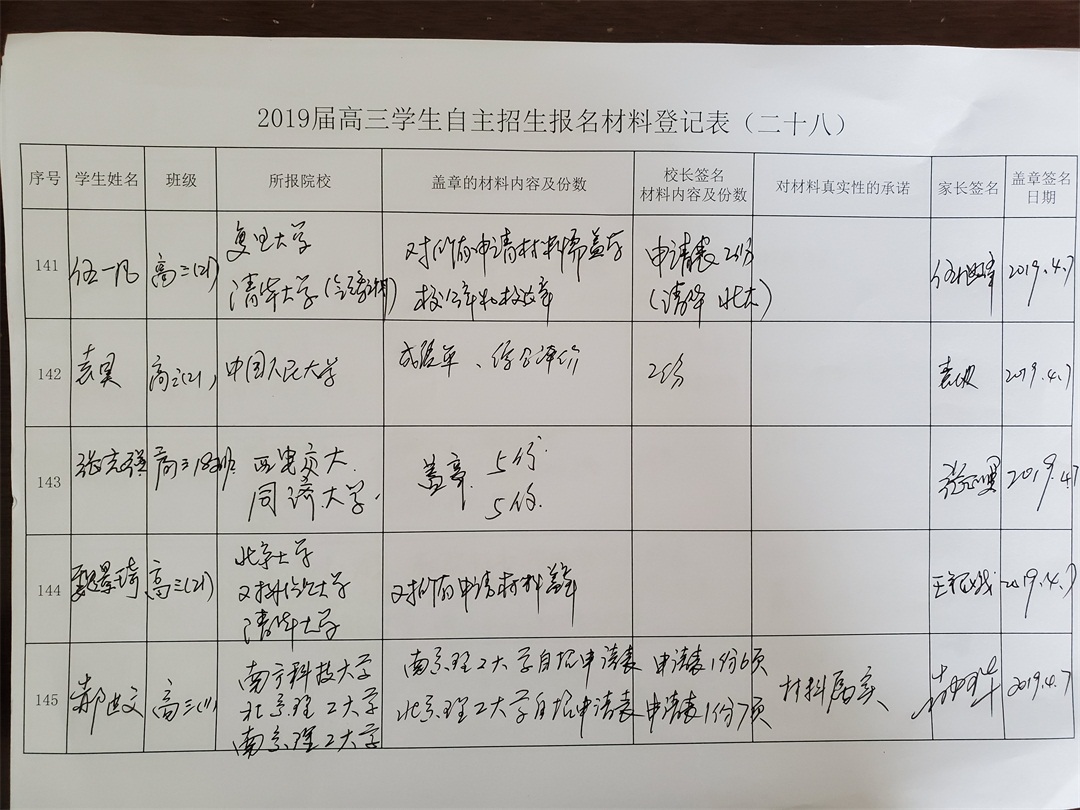 2019届高三学生自主招生报名材料登记表（二十八）
序号 学生姓名 班级 所报院校 盖章的材料内容及份数 校长签名 材料内容及份数 对材料真实性的承诺 家长签名 盖章签名 日期
141 伍一凡 高三(21) 复旦大学 申请材料 申请表 2份 2019.4.7
清华大学 (清华 北大)
142 袁昊 高三(21) 中国人民大学 成绩单、综合评价 2份 2019.4.7
143 张克强 高三18班 西电交大. 盖章. 5份. 2019.4.7
同济大学. 5份.
144 魏景琦 高三(21) 北京大学 申请材料盖章 2019.4.7
大学
清华大学
145 郝世文 高三(11) 南方科技大学 南京理工大学自招申请表 申请表1份6页 材料属实 2019.4.7
北京理工大学 北京理工大学自招申请表 申请表1份7页
南京理工大学